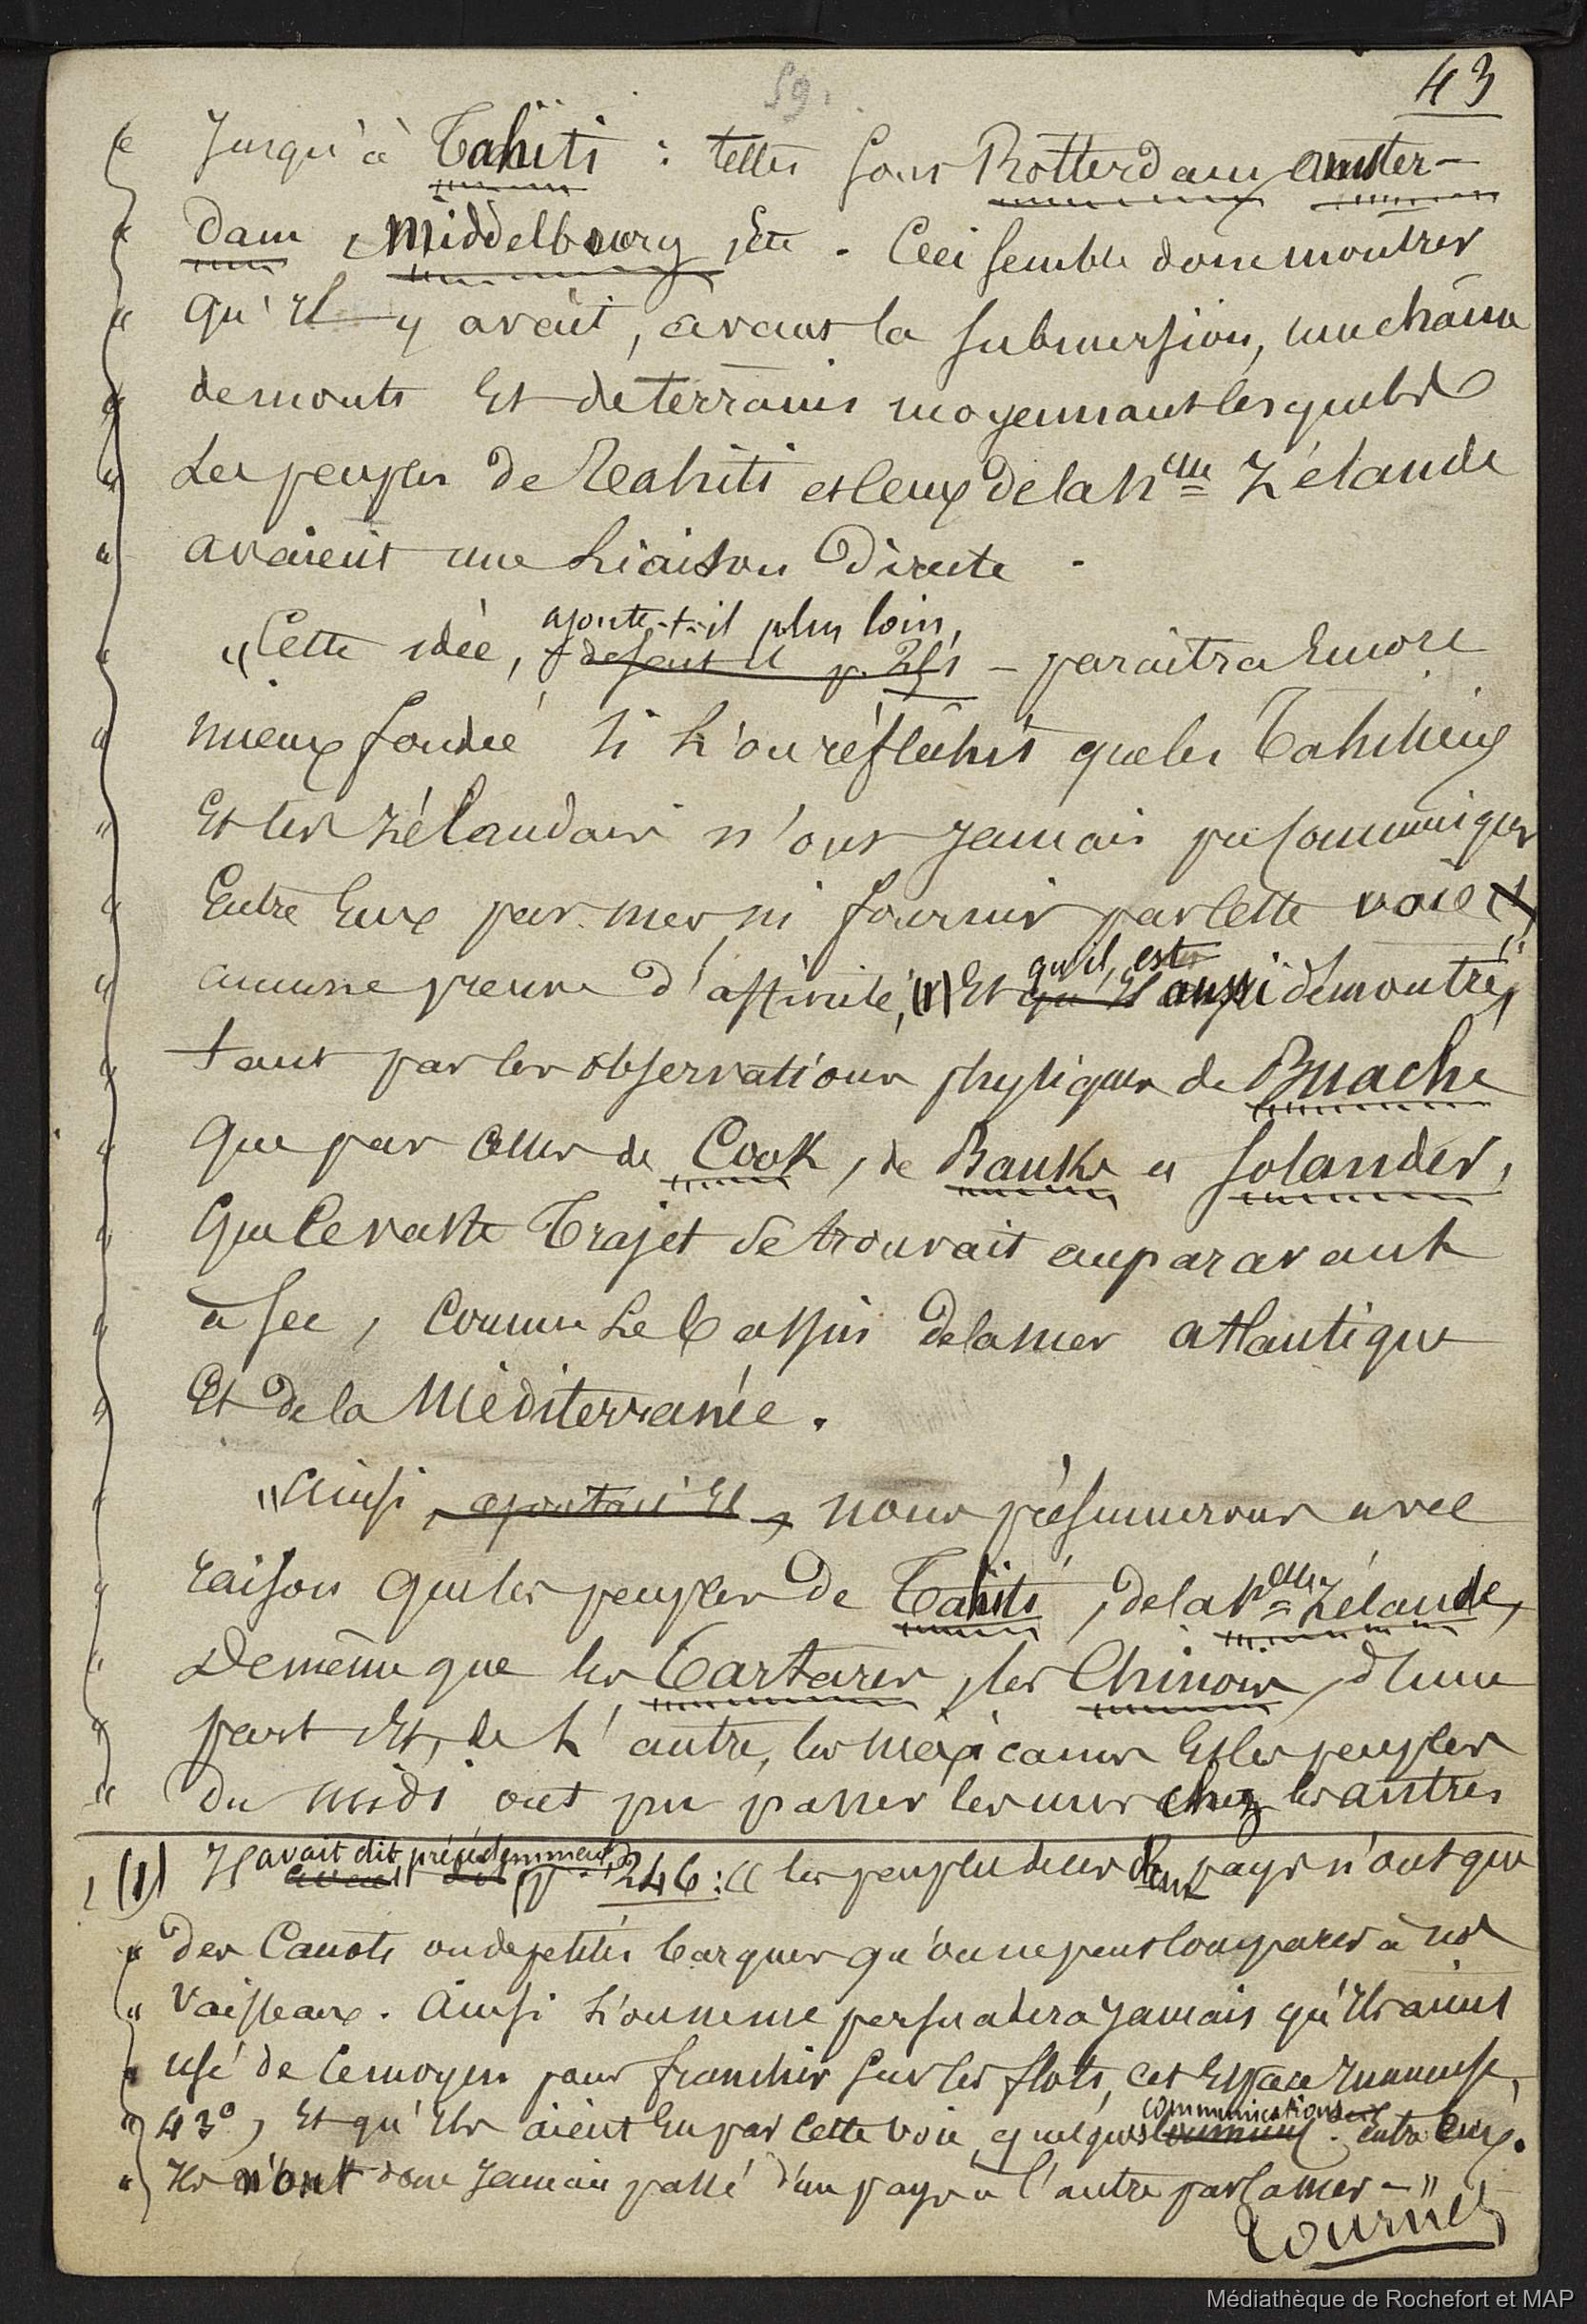 59.
43
« Jusqu'à Tahiti : telles sont Rotterdam, amster-
« dam, Middelbourg, etc. Ceci semble donc montrer
« qu'il y avait, avant la submersion, une chaîne
« de monts et de terrains moyennant lesquels
« les peuples de Tahiti et ceux de la Nlle Zélande
« avaient une liaison directe.
« "Cette idée, ajoute-t-il plus loin, – paraîtra encore
« mieux fondée si l'on réfléchit que les Tahitiens
« et les Zélandais n'ont jamais pu communiquer
« entre eux par mer, ni fournir par cette voie
« aucune preuve d'affinité, (1) et qu'il est aussi démontré,
« tant par les observations physiques de Buache
« que par celles de Cook, de Banks et Solander,
« que ce vaste trajet se trouvait auparavant
« à sec, comme le bassin de la mer atlantique
« et de la Méditerranée.
« "Ainsi, ajoutait il, nous présumerons avec
« raison que les peuples de Tahiti, de la Nlle Zélande,
« de même que les Tartares, les Chinois, d'une
« part et, de l'autre, les Mexicains et les peuples
« du midi, ont pu passer les uns chez les autres
(1) Il avait dit précédemment, p. 246 : « les peuples de ces deux pays n'ont que
« des canots ou de petites barques qu'on ne peut comparer à nos
« vaisseaux. Ainsi l'on ne me persuadera jamais qu'ils aient
« usé de ce moyen pour franchir sur les flots, cet espace immense,
« 43°, et qu'ils aient eu par cette voie quelques communications entre eux.
« Ils n'ont donc jamais passé d'un pays à l'autre par la mer – "
Tournez
Médiathèque de Rochefort et MAP